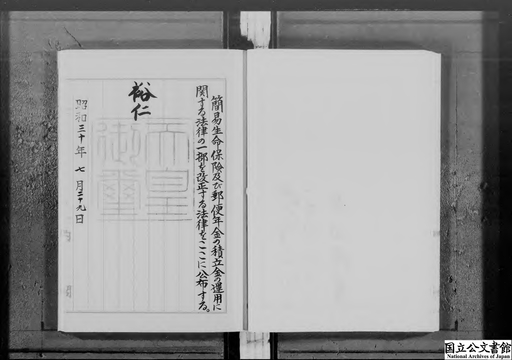 簡易生命保険及び郵便年金の積立金の運用に
関する法律の一部を改正する法律をここに公布する。
裕仁
天皇
御璽
昭和三十年七月二十九日
国立公文書館
National Archives of Japan